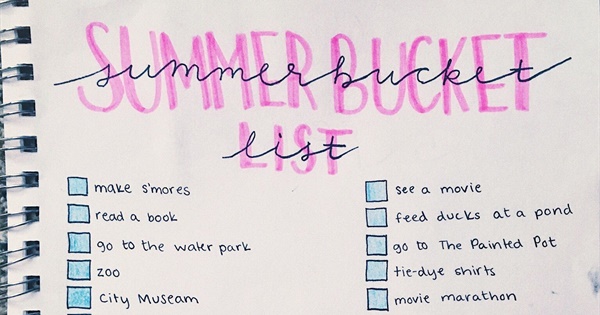 SUMMER BUCKET
summer bucket
LIST
list
make s'mores
read a book
go to the water park
zoo
City Museam
see a movie
feed ducks at a pond
go to The Painted Pot
tie-dye shirts
movie marathon